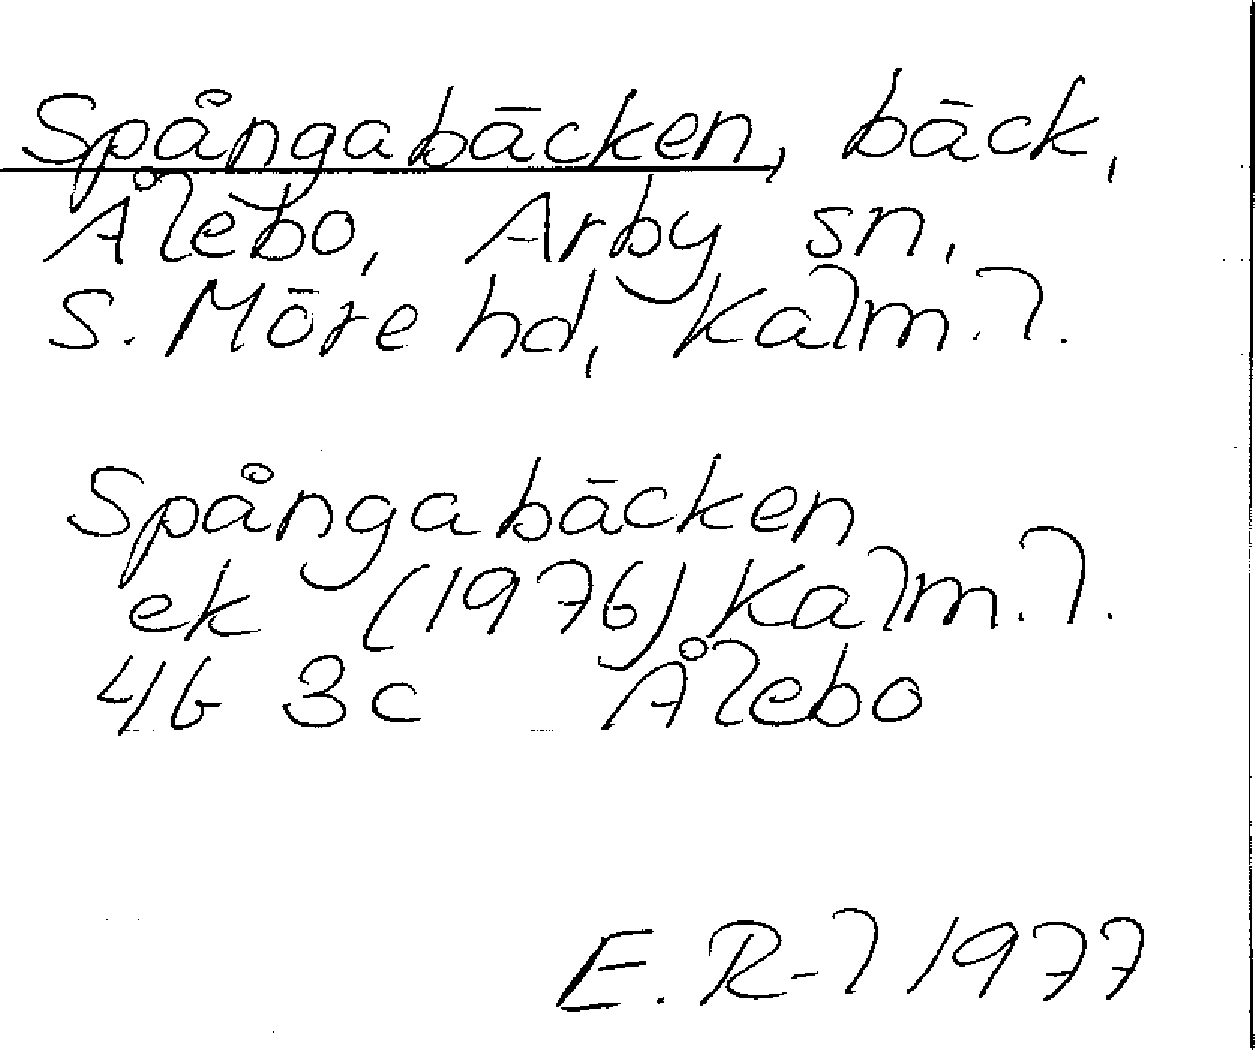 Spångabäcken, bäck,
Ålebo, Arby sn,
S. Möre hd, Kalm. l.
Spångabäcken
ek (1976) Kalm. l.
4G 3c Ålebo
E. R-l 1977